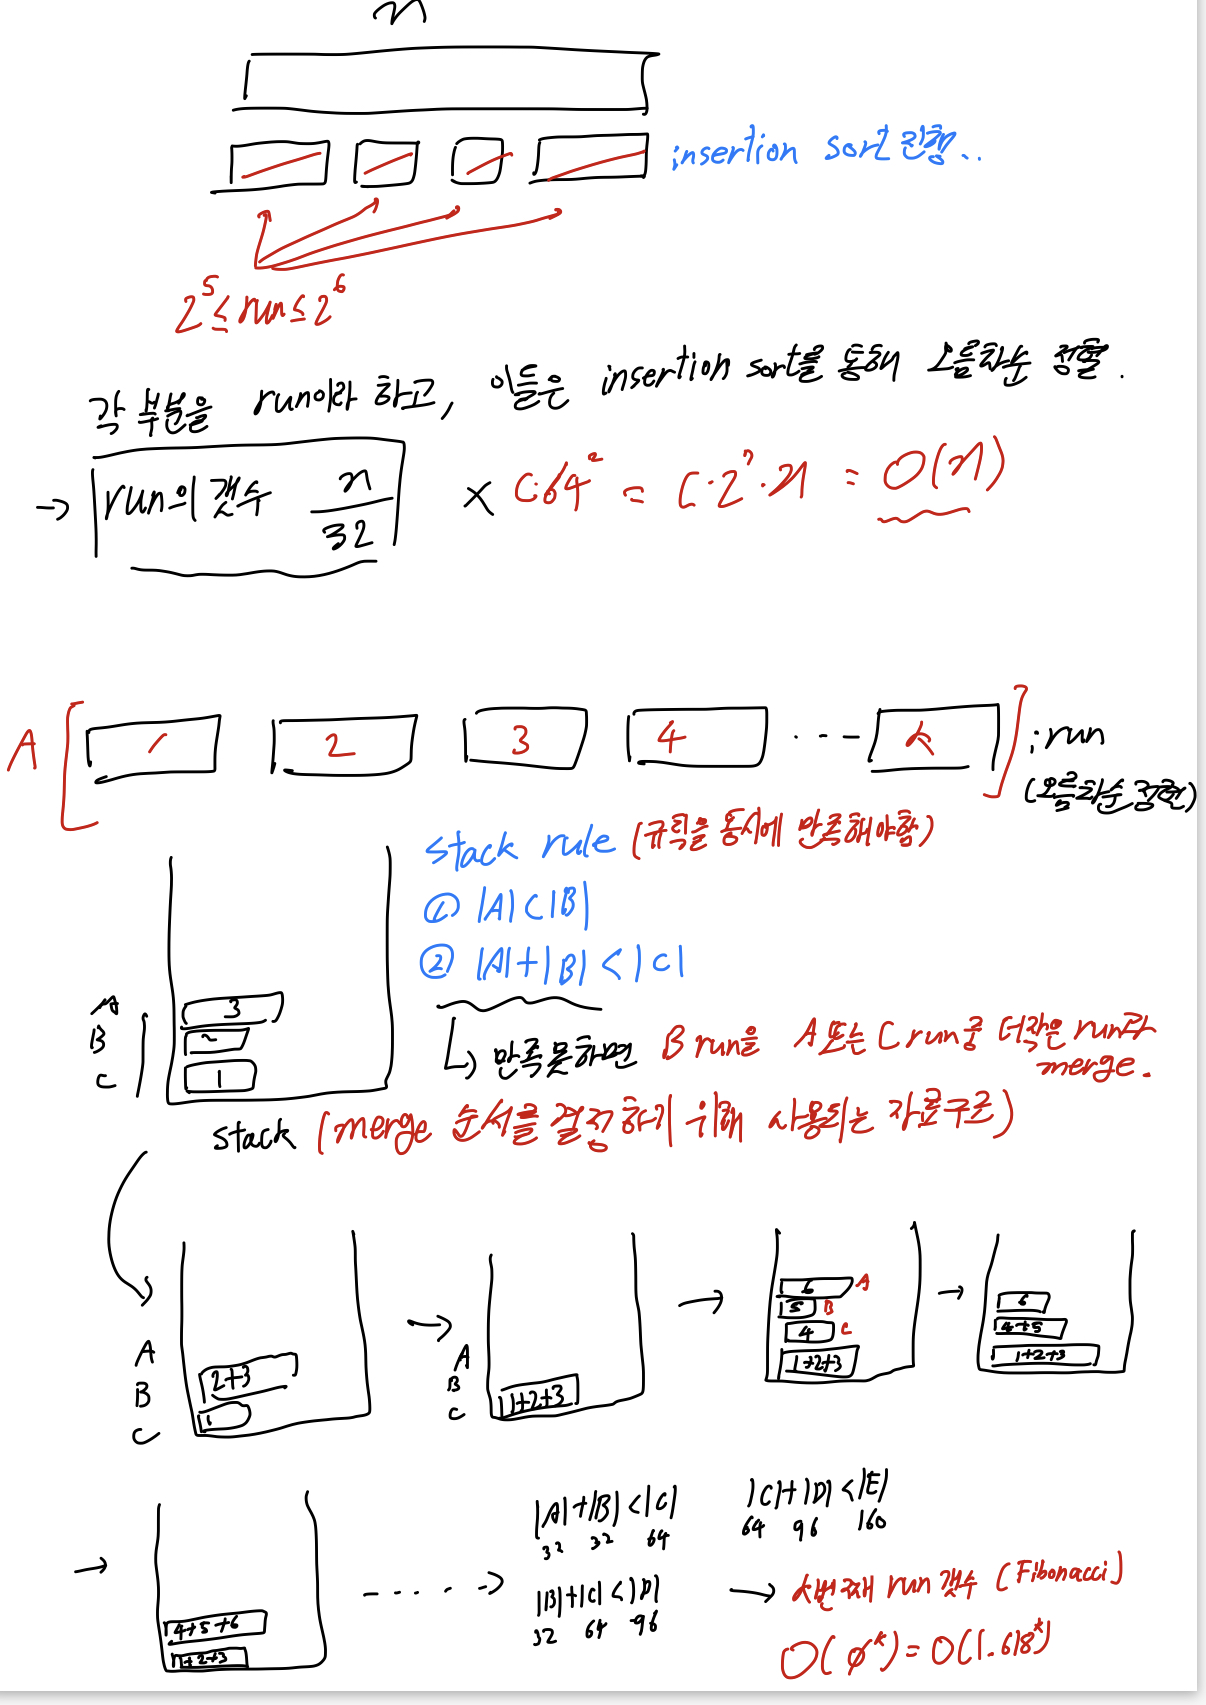 n
insertion sort 진행..
2⁵ ≤ run ≤ 2⁶
각 부분을 run이라 하고, 이들은 insertion sort를 통해 오름차순 정렬.
→ run의 갯수 n/32 × C·64² = C·2⁷·n = O(n)
A [ 1 2 3 4 ... k ] ; run
(오름차순 정렬)
stack rule (규칙을 동시에 만족해야함)
① |A| < |B|
② |A|+|B| < |C|
A 3
B 2
C 1
만족 못하면 B run을 A 또는 C run중 더작은 run과
merge.
stack (merge 순서를 결정하기 위해 사용되는 자료구조)
A
B 2+3
C 1
→
A
B
C 1+2+3
→
6 A
5 B
4 C
1+2+3
→
6
4+5
1+2+3
→
4+5+6
1+2+3
- - - - →
|A|+|B| < |C|
32 32 64
|B|+|C| < |D|
32 64 96
|C|+|D| < |E|
64 96 160
→ k번째 run 갯수 (Fibonacci)
O(ø^k) = O(1.618^k)